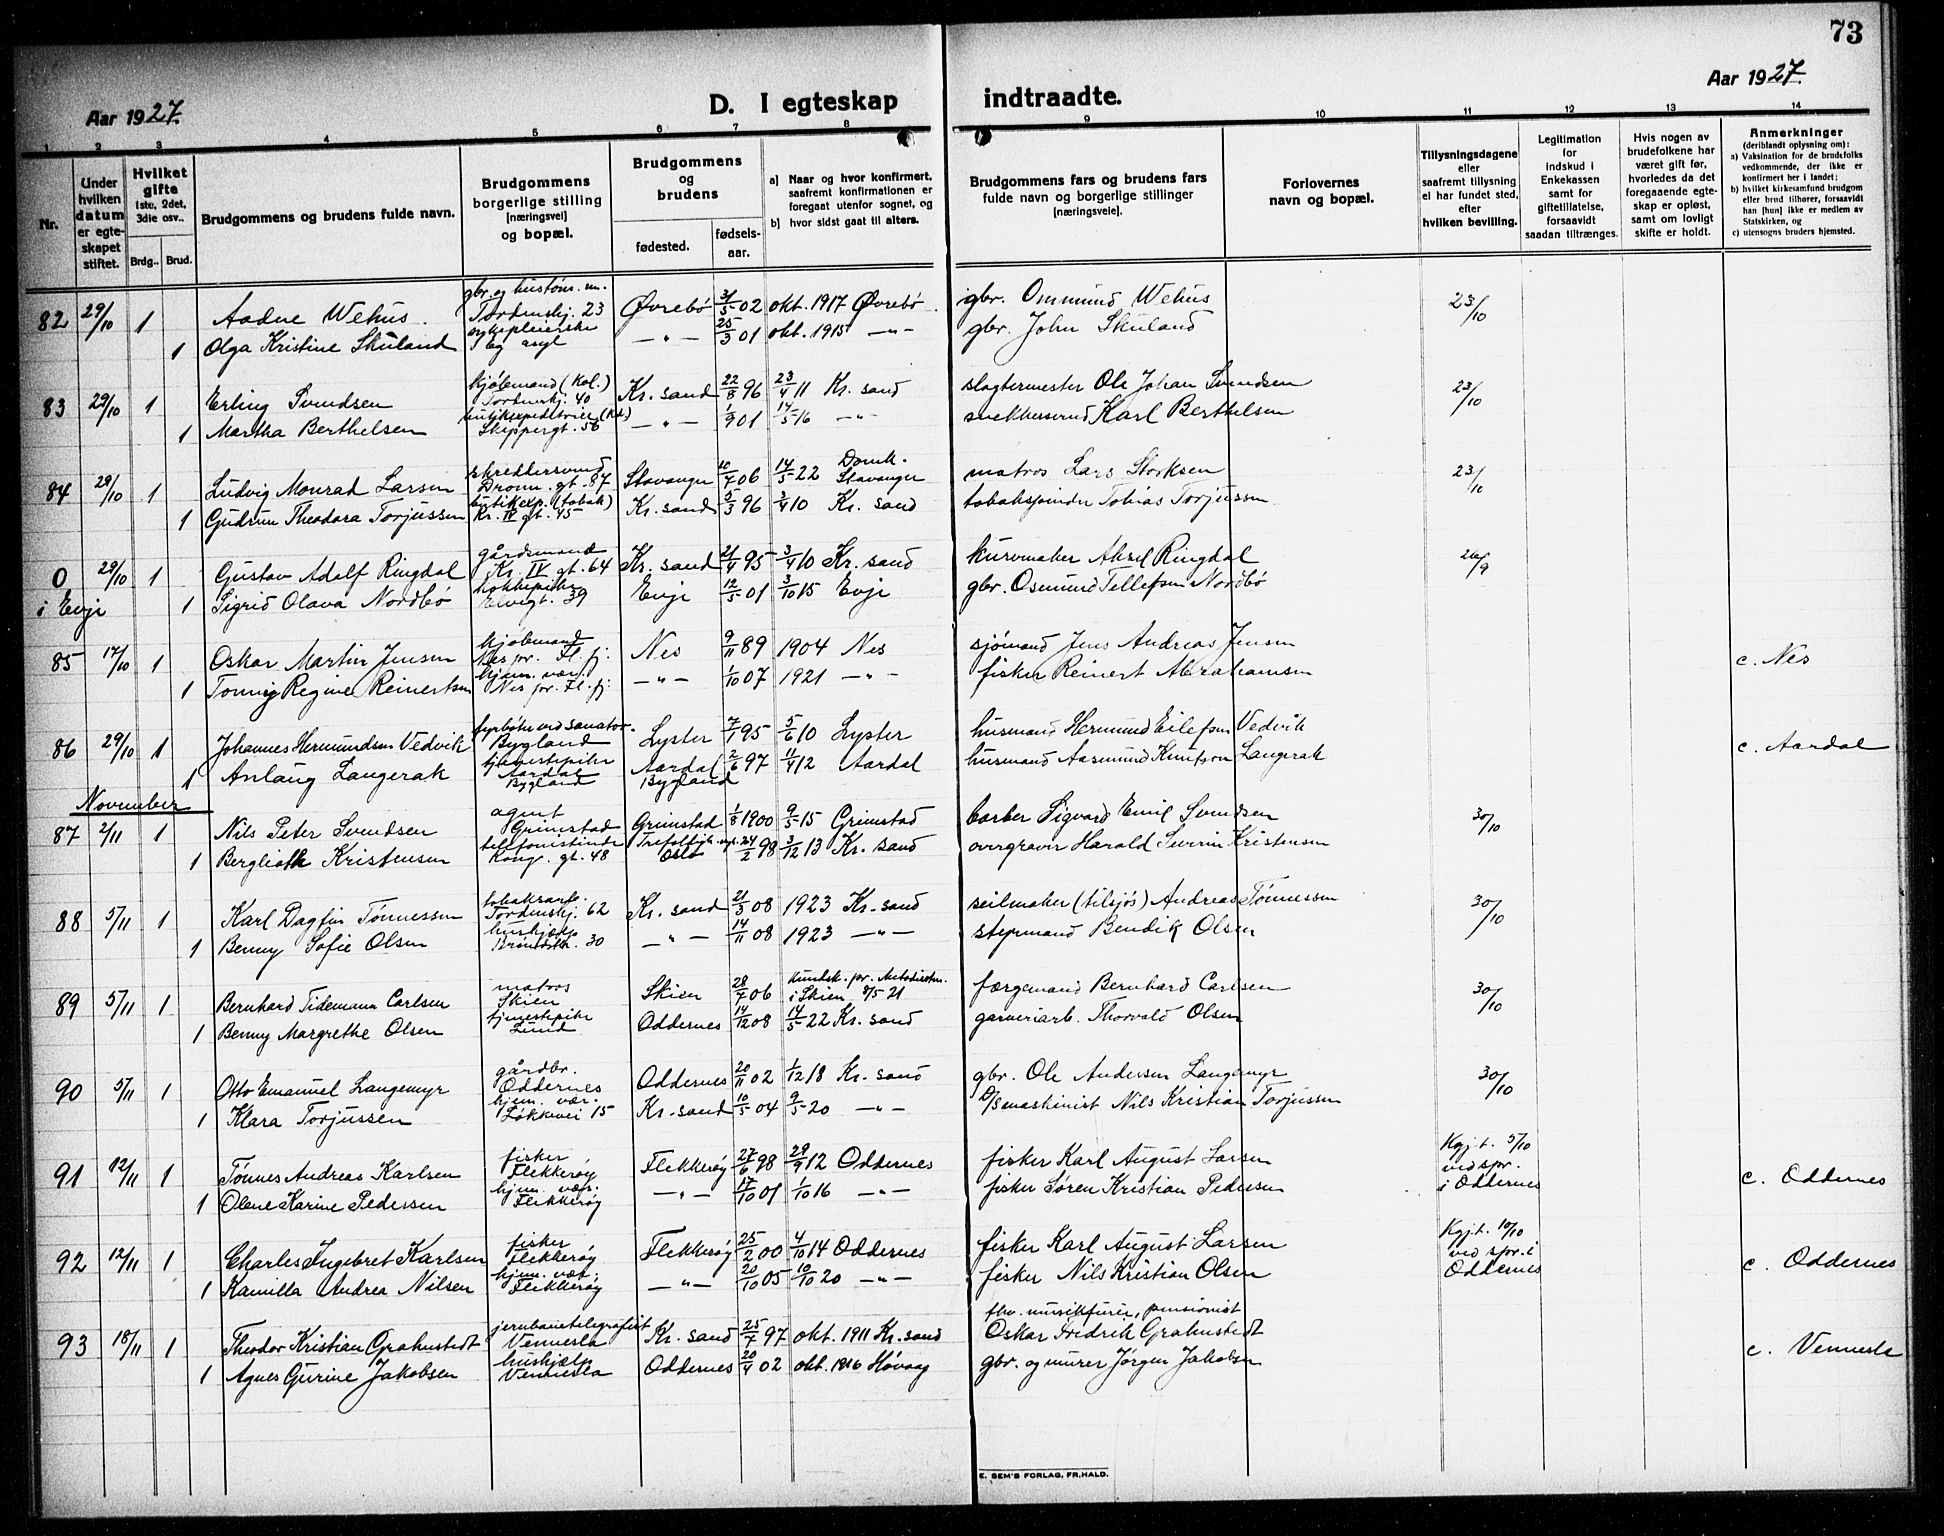 73
Aar 1927. D. I egteskap indtraadte. Aar 1927.
1 2 3 4 5 6 7 8 9 10 11 12 13 14
Nr.
Under hvilken datum er egte-skapet stiftet.
Hvilket gifte 1ste, 2det, 3die osv..
Brdg.. Brud.
Brudgommens og brudens fulde navn.
Brudgommens borgerlige stilling [næringsvei] og bopæl.
Brudgommens og brudens
fødested. fødsels-aar.
a) Naar og hvor konfirmert, saafremt konfirmationen er foregaat utenfor sognet, og
b) hvor sidst gaat til alters.
Brudgommens fars og brudens fars fulde navn og borgerlige stillinger [næringsveie].
Forlovernes navn og bopæl.
Tillysningsdagene eller saafremt tillysning ei har fundet sted, efter hvilken bevilling.
Legitimation for indskud i Enkekassen samt for giftetillatelse, forsaavidt saadan tiltrænges.
Hvis nogen av brudefolkene har været gift før, hvorledes da det foregaaende egte-skap er opløst, samt om lovligt skifte er holdt.
Anmerkninger (deriblandt oplysning om):
a) Vaksination for de brudefolks vedkommende, der ikke er konfirmert her i landet;
b) hvilket kirkesamfund brudgom eller brud tilhører, forsaavidt han [hun] ikke er medlem av Statskirken, og
c) utensogns bruders hjemsted.
82 29/10 1 Aadne Wehus. gbr. og hustøms. m. Tordenskj. 23 Øvrebø 31/5 02 okt. 1917 Øvrebø gbr. Ommund Wehus 23/10
1 Olga Kristine Skuland sykepleierske Eg asyl —"— 25/3 01 okt. 1915 —"— gbr. John Skuland
83 29/10 1 Erling Svendsen kjøbmand (Kol.) Tordenskj. 40 Kr. sand 22/8 96 23/4 11 Kr. sand slagtermester Ole Johan Svendsen 23/10
1 Martha Berthelsen butikexpeditrice (Kol.) Skippergt. 56 —"— 1/9 01 14/5 16 —"— snekkersvend Karl Berthelsen
84 29/10 1 Ludvig Monrad Larsen skreddersvend Dronn. gt. 87 Stavanger 10/7 06 14/5 22 Domk. Stavanger matros Lars Storksen 23/10
1 Gudrun Theodora Torjussen butikexp. (tobak) Kr. IV gt. 45 Kr. sand 5/3 96 3/4 10 Kr. sand tobakspinder Tobias Torjussen
0 i Evje 29/10 1 Gustav Adolf Ringdal gårdsmand Kr. IV gt. 64 Kr. sand 21/4 95 3/4 10 Kr. sand kurvmaker Aksel Ringdal 26/9
1 Sigrid Olava Nordbø kokkepike Elvegt. 39 Evje 12/5 01 3/10 15 Evje gbr. Osmund Tellefsen Nordbø
85 17/10 1 Oskar Martin Jensen kjøbmand Nes pr. Fl. fj. Nes 9/11 89 1904 Nes sjømand Jens Andreas Jensen c. Nes
1 Tonny Regine Reinertsen hjem. vær. Nes pr. Fl. fj —"— 1/10 07 1921 —"— fisker Reinert Abrahamsen
86 29/10 1 Johannes Hermundsen Vedvik fyrbøter ved sanator. Bygland Lyster 7/1 95 5/6 10 Lyster husmand Hermund Eilefsen Vedvik c. Aardal
1 Anlaug Langerak tjenestepike Aardal Bygland Aardal Bygland 2/6 97 11/4 12 Aardal husmand Aasmund Knutson Langerak
November
87 2/11 1 Nils Peter Svendsen agent Grimstad Grimstad 1/8 1900 9/5 15 Grimstad barber Sigvard Emil Svendsen 30/10
1 Berglioth Kristensen telefonistinde Kong. gt. 48 Trefoldigh. Oslo 24/2 98 3/12 13 Kr. sand overgravir Harald Severin Kristensen
88 5/11 1 Karl Dagfin Tønnessen tobaksarb. Tordenskj. 62 Kr. sand 21/3 08 1923 Kr. sand seilmaker (tilsjøs) Andreas Tønnessen 30/10
1 Benny Sofie Olsen hushjælp 30 —"— 14/11 08 1923 —"— styrmand Bendik Olsen
89 5/11 1 Bernhard Tidemann Carlsen matros Skien Skien 28/7 06 kundsk. pr. Metodistm. i Skien 8/5 21 færgemand Bernhard Carlsen 30/10
1 Benny Margrethe Olsen tjenestepike Lund Oddernes 14/12 08 14/5 22 Kr. sand garveriarb. Thorvald Olsen
90 5/11 1 Otto Emanuel Langemyr gårdbr. Oddernes Oddernes 20/11 02 1/12 18 Kr. sand gbr. Ole Andersen Langemyr 30/10
1 Klara Torjussen hjem. vær. Løkkevei 15 Kr. sand 10/5 04 9/5 20 —"— D/Smaskinist Nils Kristian Torjussen
91 12/11 1 Tønnes Andreas Karlsen fisker Flekkerøy Flekkerøy 27/6 98 29/9 12 Oddernes fisker Karl August Larsen Kgj.t. 5/10 ved spr. i Oddernes c. Oddernes
1 Olene Karine Pedersen hjem. vær. Flekkerøy —"— 17/10 01 1/10 16 —"— fisker Søren Kristian Pedersen
92 12/11 1 Charles Ingebret Karlsen fisker Flekkerøy Flekkerøy 25/2 00 4/10 14 Oddernes fisker Karl August Larsen Kgj.t. 10/10 ved spr. i Oddernes c. Oddernes
1 Kamilla Andrea Nilsen hjem. vær. Flekkerøy —"— 20/10 05 10/10 20 —"— fisker Nils Kristian Olsen
93 18/11 1 Theodor Kristian Grahnstedt jernbanetelegrafist Vennesla Kr. sand 25/7 97 okt. 1911 Kr. sand fhv. musikfurer, pensionist Oskar Fredrik Grahnstedt c. Vennesla
1 Agnes Gurine Jakobsen hushjælp Vennesla Oddernes 20/4 02 okt. 1916 Høvaag gbr. og murer Jørgen Jakobsen
E. SEM'S FORLAG, FR.HALD.